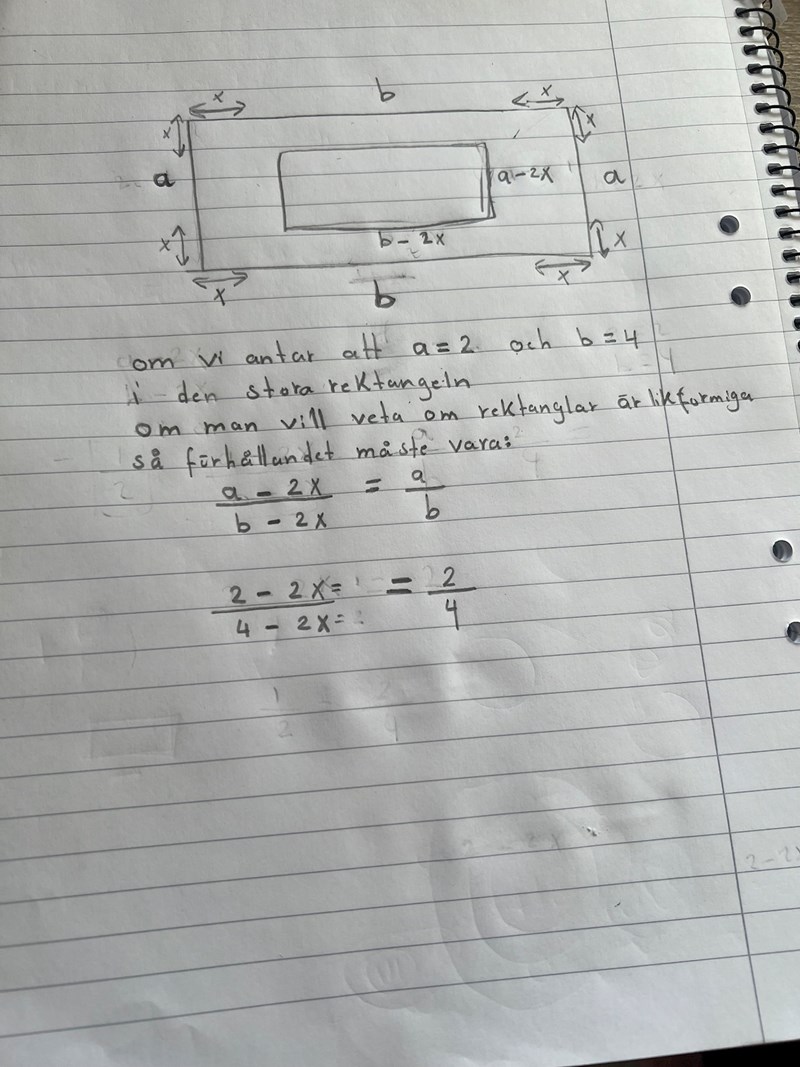 x b x
x x
a a-2x a
b - 2x
x x
x x
b
om vi antar att a = 2 och b = 4
i den stora rektangeln
om man vill veta om rektanglar är likformiga
så förhållandet måste vara:
a - 2x = a
b - 2x b
2 - 2x= = 2
4 - 2x= 4